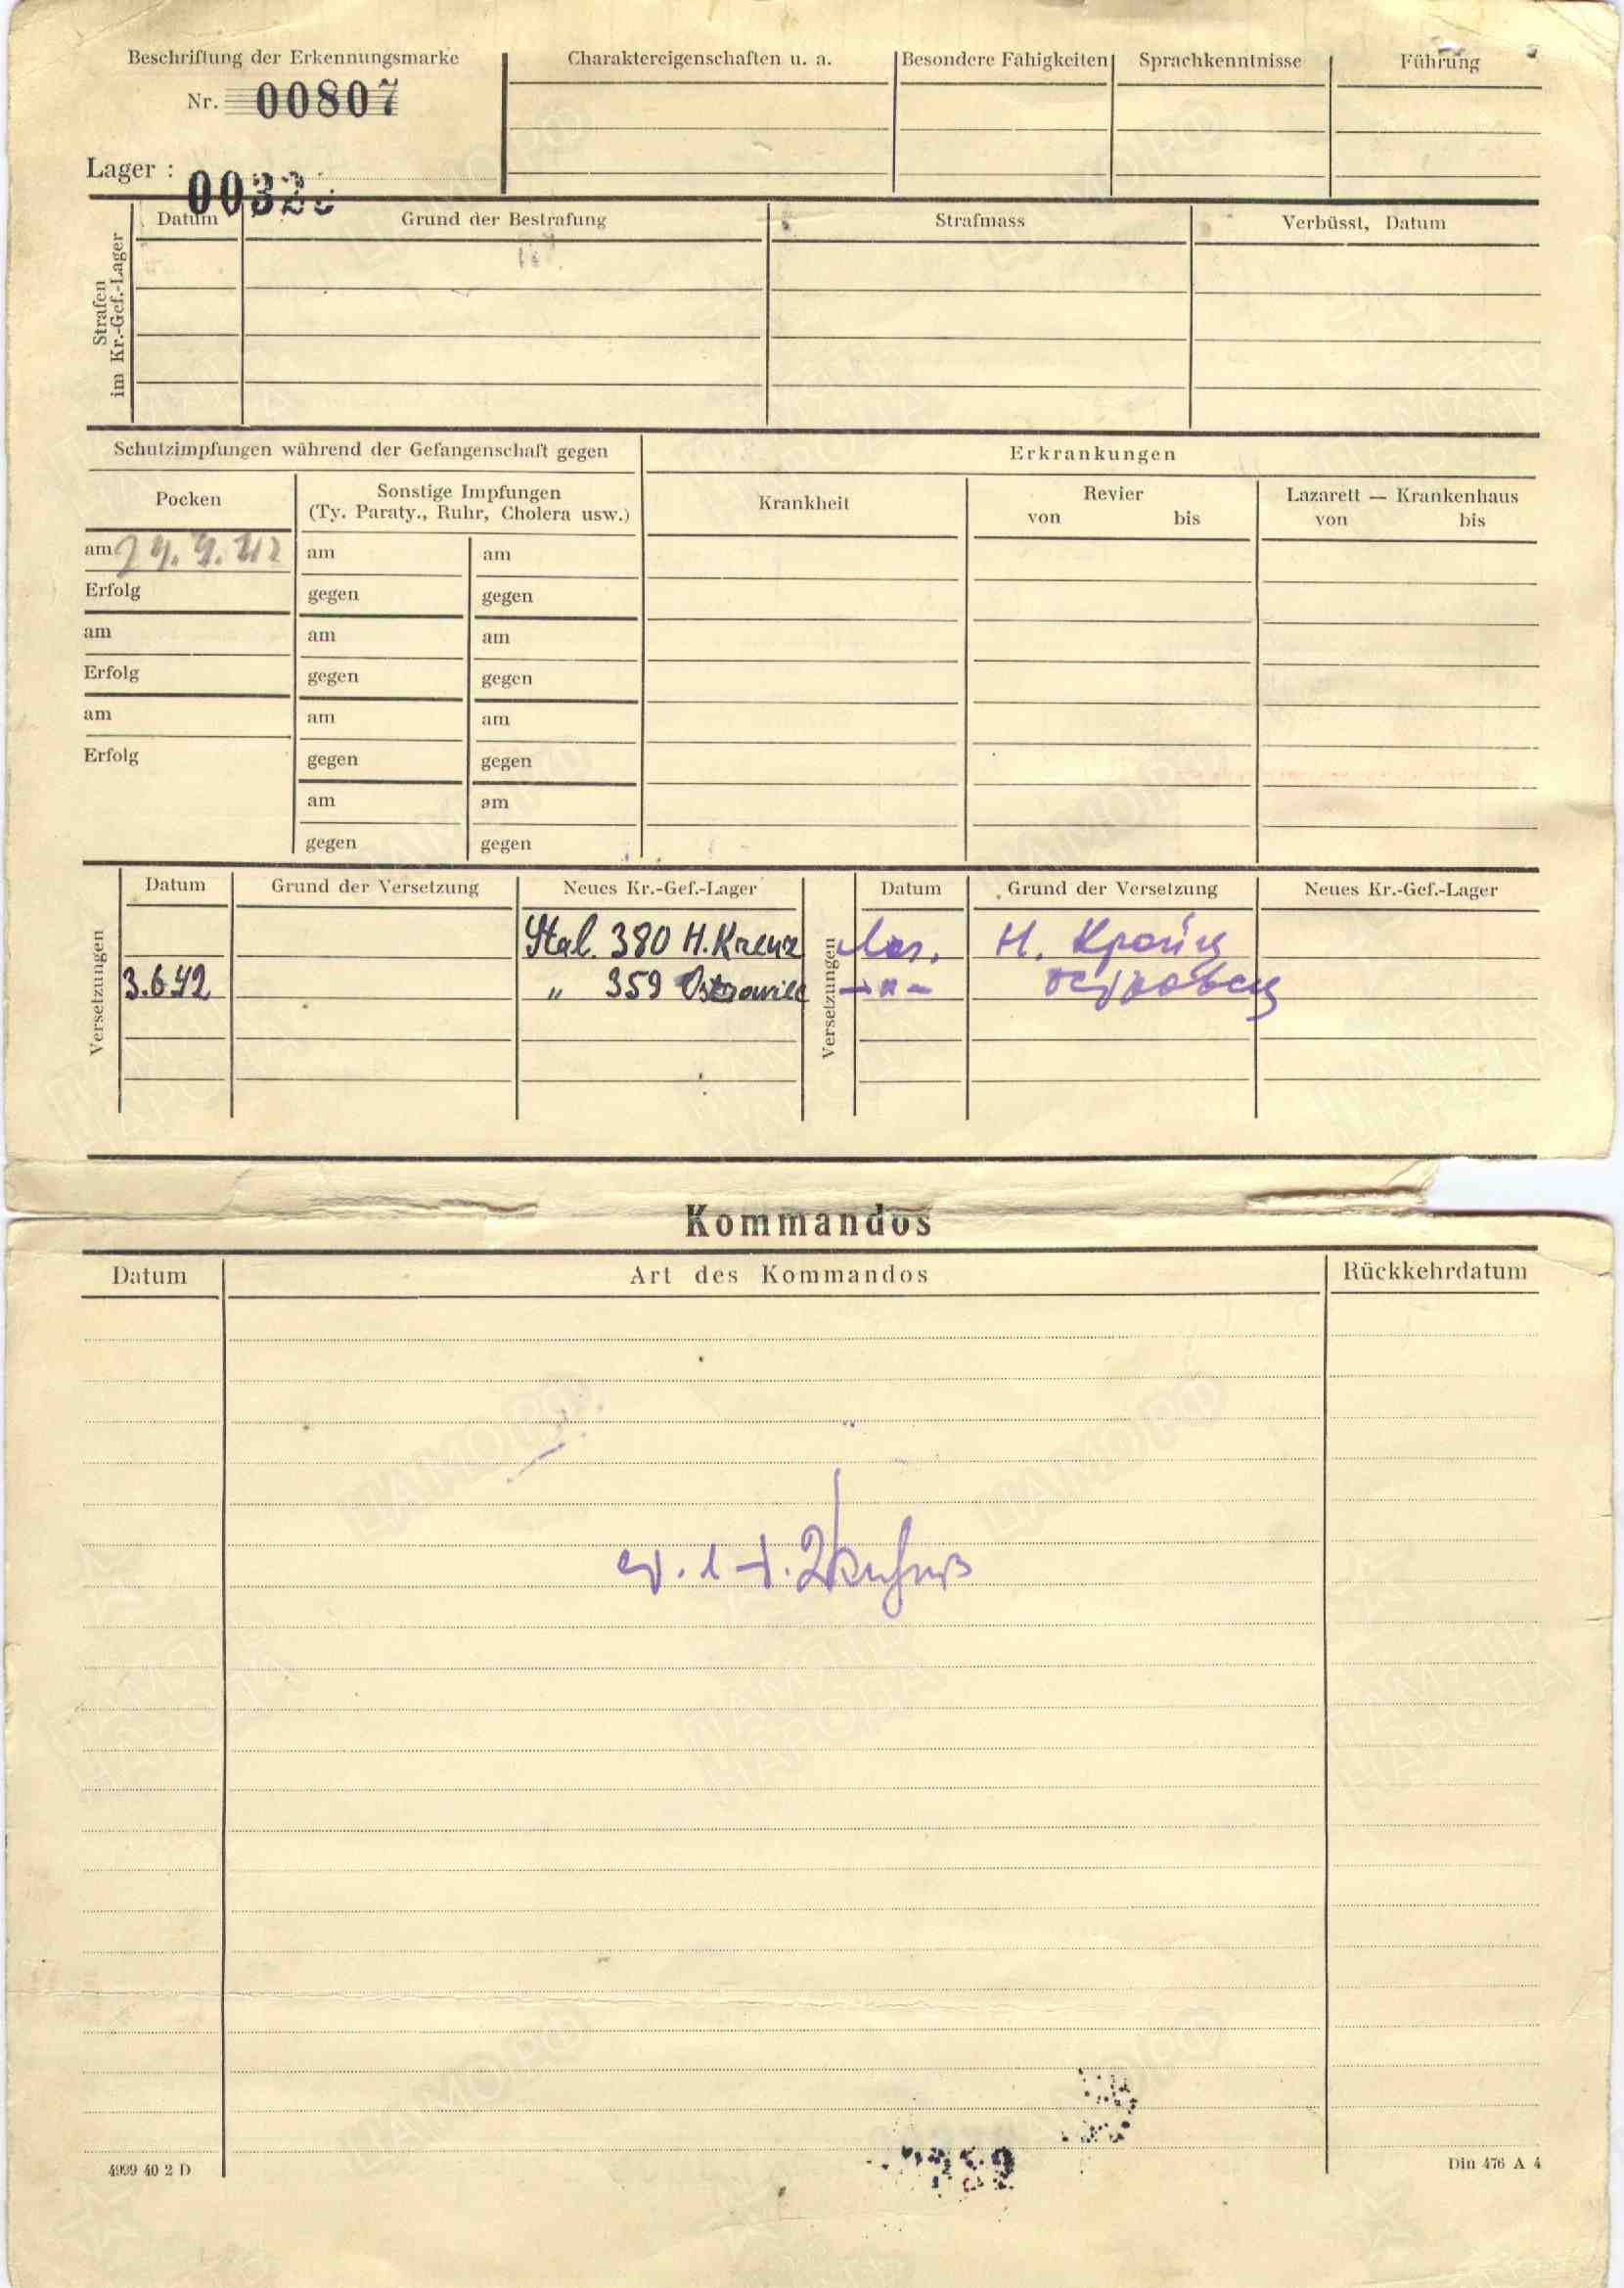 Beschriftung der Erkennungsmarke
Nr. 00807
Lager :
Charaktereigenschaften u. a.
Besondere Fähigkeiten
Sprachkenntnisse
Führung
Strafen
im Kr.-Gef.-Lager
Datum
Grund der Bestrafung
Strafmass
Verbüsst, Datum
Schutzimpfungen während der Gefangenschaft gegen
Erkrankungen
Pocken
Sonstige Impfungen
(Ty. Paraty., Ruhr, Cholera usw.)
Krankheit
Revier
von bis
Lazarett — Krankenhaus
von bis
am am am
Erfolg gegen gegen
am am am
Erfolg gegen gegen
am am am
Erfolg gegen gegen
am am
gegen gegen
Versetzungen
Datum Grund der Versetzung Neues Kr.-Gef.-Lager
Stal. 380 H. Kreuz
3.6.42 " 359
Versetzungen
Datum Grund der Versetzung Neues Kr.-Gef.-Lager
Н. Крайц
Kommandos
Datum Art des Kommandos Rückkehrdatum
4999 40 2 D
Din 476 A 4